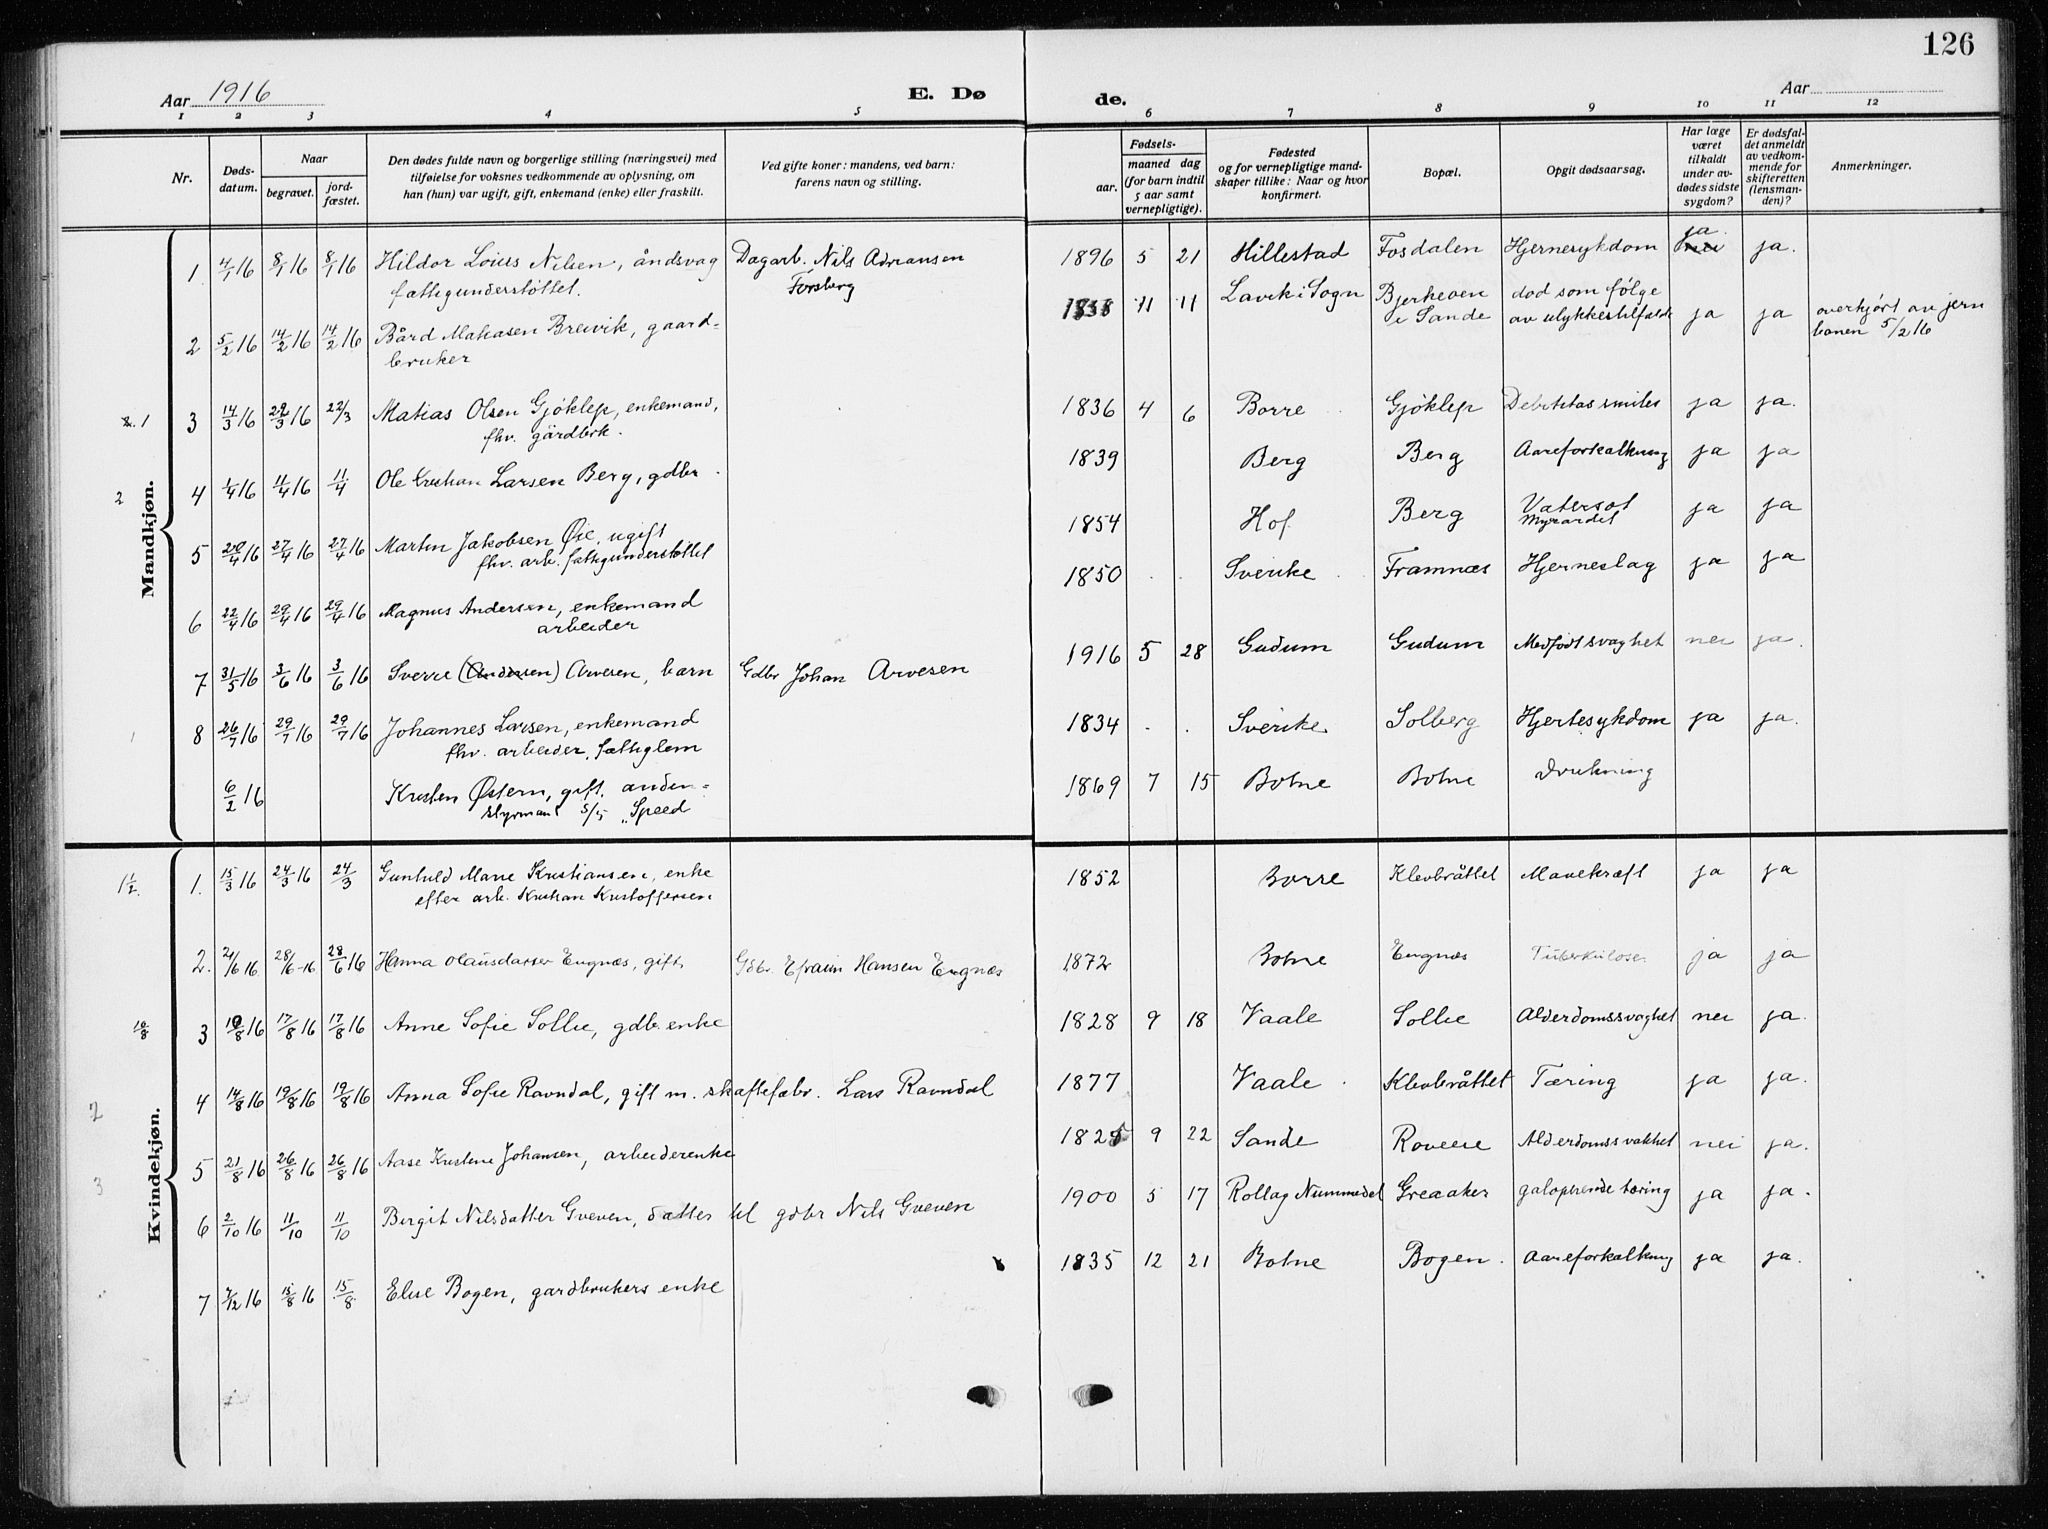 126
Aar 1916
E. Dø
de.
Aar
1 2 3 4 5 6 7 8 9 10 11 12
Nr.
Døds-
datum.
Naar
begravet.
jord-
fæstet.
Den dødes fulde navn og borgerlige stilling (næringsvei) med
tilføielse for voksnes vedkommende av oplysning, om
han (hun) var ugift, gift, enkemand (enke) eller fraskilt.
Ved gifte koner: mandens, ved barn:
farens navn og stilling.
Fødsels-
aar.
maaned dag
(for barn indtil
5 aar samt
vernepligtige).
Fødested
og for vernepligtige mand-
skaper tillike: Naar og hvor
konfirmert.
Bopæl.
Opgit dødsaarsag.
Har læge
været
tilkaldt
under av-
dødes sidste
sygdom?
Er dødsfal-
det anmeldt
av vedkom-
mende for
skifteretten
(lensman-
den)?
Anmerkninger.
Mandkjøn.
1. 4/1 16 8/1 16 8/1 16 Hildor Loius Nilsen, åndsvag Dagarb. Nils Adriansen 1896 5 21 Hillestad Fosdalen Hjernesykdom ja. ja.
fattigunderstøttet. Forsberg
2 5/2 16 14/2 16 14/2 16 Bård Matiasen Breivik, gaard- 1838 11 11 Lavik i Sogn Bjerkeøen død som følge ja ja overkjørt av jern
bruker i Sande av ulykkestilfælde banen 5/2 16
1 3 14/3 16 22/3 16 22/3 Matias Olsen Gjøklep, enkemand, 1836 4 6 Borre Gjøklep Debilitas senilis ja ja.
fhv. gårdbrk.
2 4 1/4 16 11/4 16 11/4 Ole Kristian Larsen Berg, gdbr. 1839 Berg Berg Aareforkalkning ja ja
5 20/4 16 27/4 16 27/4 16 Martin Jakobsen Øie, ugift 1854 Hof Berg Vatersot ja ja
fhv. arb. fattigunderstøttet Myrardet
6 22/4 16 29/4 16 29/4 16 Magnus Andersen, enkemand 1850 Sverike Framnæs Hjerneslag ja ja
arbeider
7 31/5 16 3/6 16 3/6 16 Sverre (Andersen) Arvesen, barn Gdbr Johan Arvesen 1916 5 28 Gudum Gudum Medfødt svaghet nei ja.
1 8 26/7 16 29/7 16 29/7 16 Johannes Larsen, enkemand 1834 Sverike Solberg Hjertesykdom ja ja.
fhv. arbeider, fattiglem
6/2 16 Kristen Østern, gift, anden- 1869 7 15 Botne Botne Drukning
styrmand S/S „Speed
Kvindekjøn.
1 1/2. 1. 15/3 16 24/3 16 24/3 Gunhild Marie Kristiansen, enke 1852 Borre Klevbråttet Mavekræft ja ja
efter arb. Kristian Kristoffersen
2. 21/6 16 28/6 - 16 28/6 16 Hanna Olausdatter Engnæs, gift Gdbr. Efraim Hansen Engnæs 1872 Botne Engnæs Tuberkulose ja ja
10/8 3 10/8 16 17/8 16 17/8 16 Anne Sofie Sollie, gdb. enke 1828 9 18 Vaale Sollie Alderdomssvaghet nei ja.
2 4 14/8 16 19/8 16 19/8 16 Anna Sofie Ravndal, gift m. skaftefabr. Lars Ravndal 1877 Vaale Klevbråttet Tæring ja ja.
3 5 21/8 16 26/8 16 26/8 16 Aase Kristine Johansen, arbeiderenke 1825 9 22 Sande Roveie Alderdomssvakhet nei ja.
6 2/10 16 11/10 11/10 Birgit Nilsdatter Gveven, datter til gdbr Nils Gveven 1900 5 17 Rollag Nummedal Greaaker galoperende tæring ja ja.
7 7/12 16 15/8 16 15/8. Elise Bogen, gardbrukers enke 1835 12 21 Botne Bogen. Aareforkalkning ja ja.